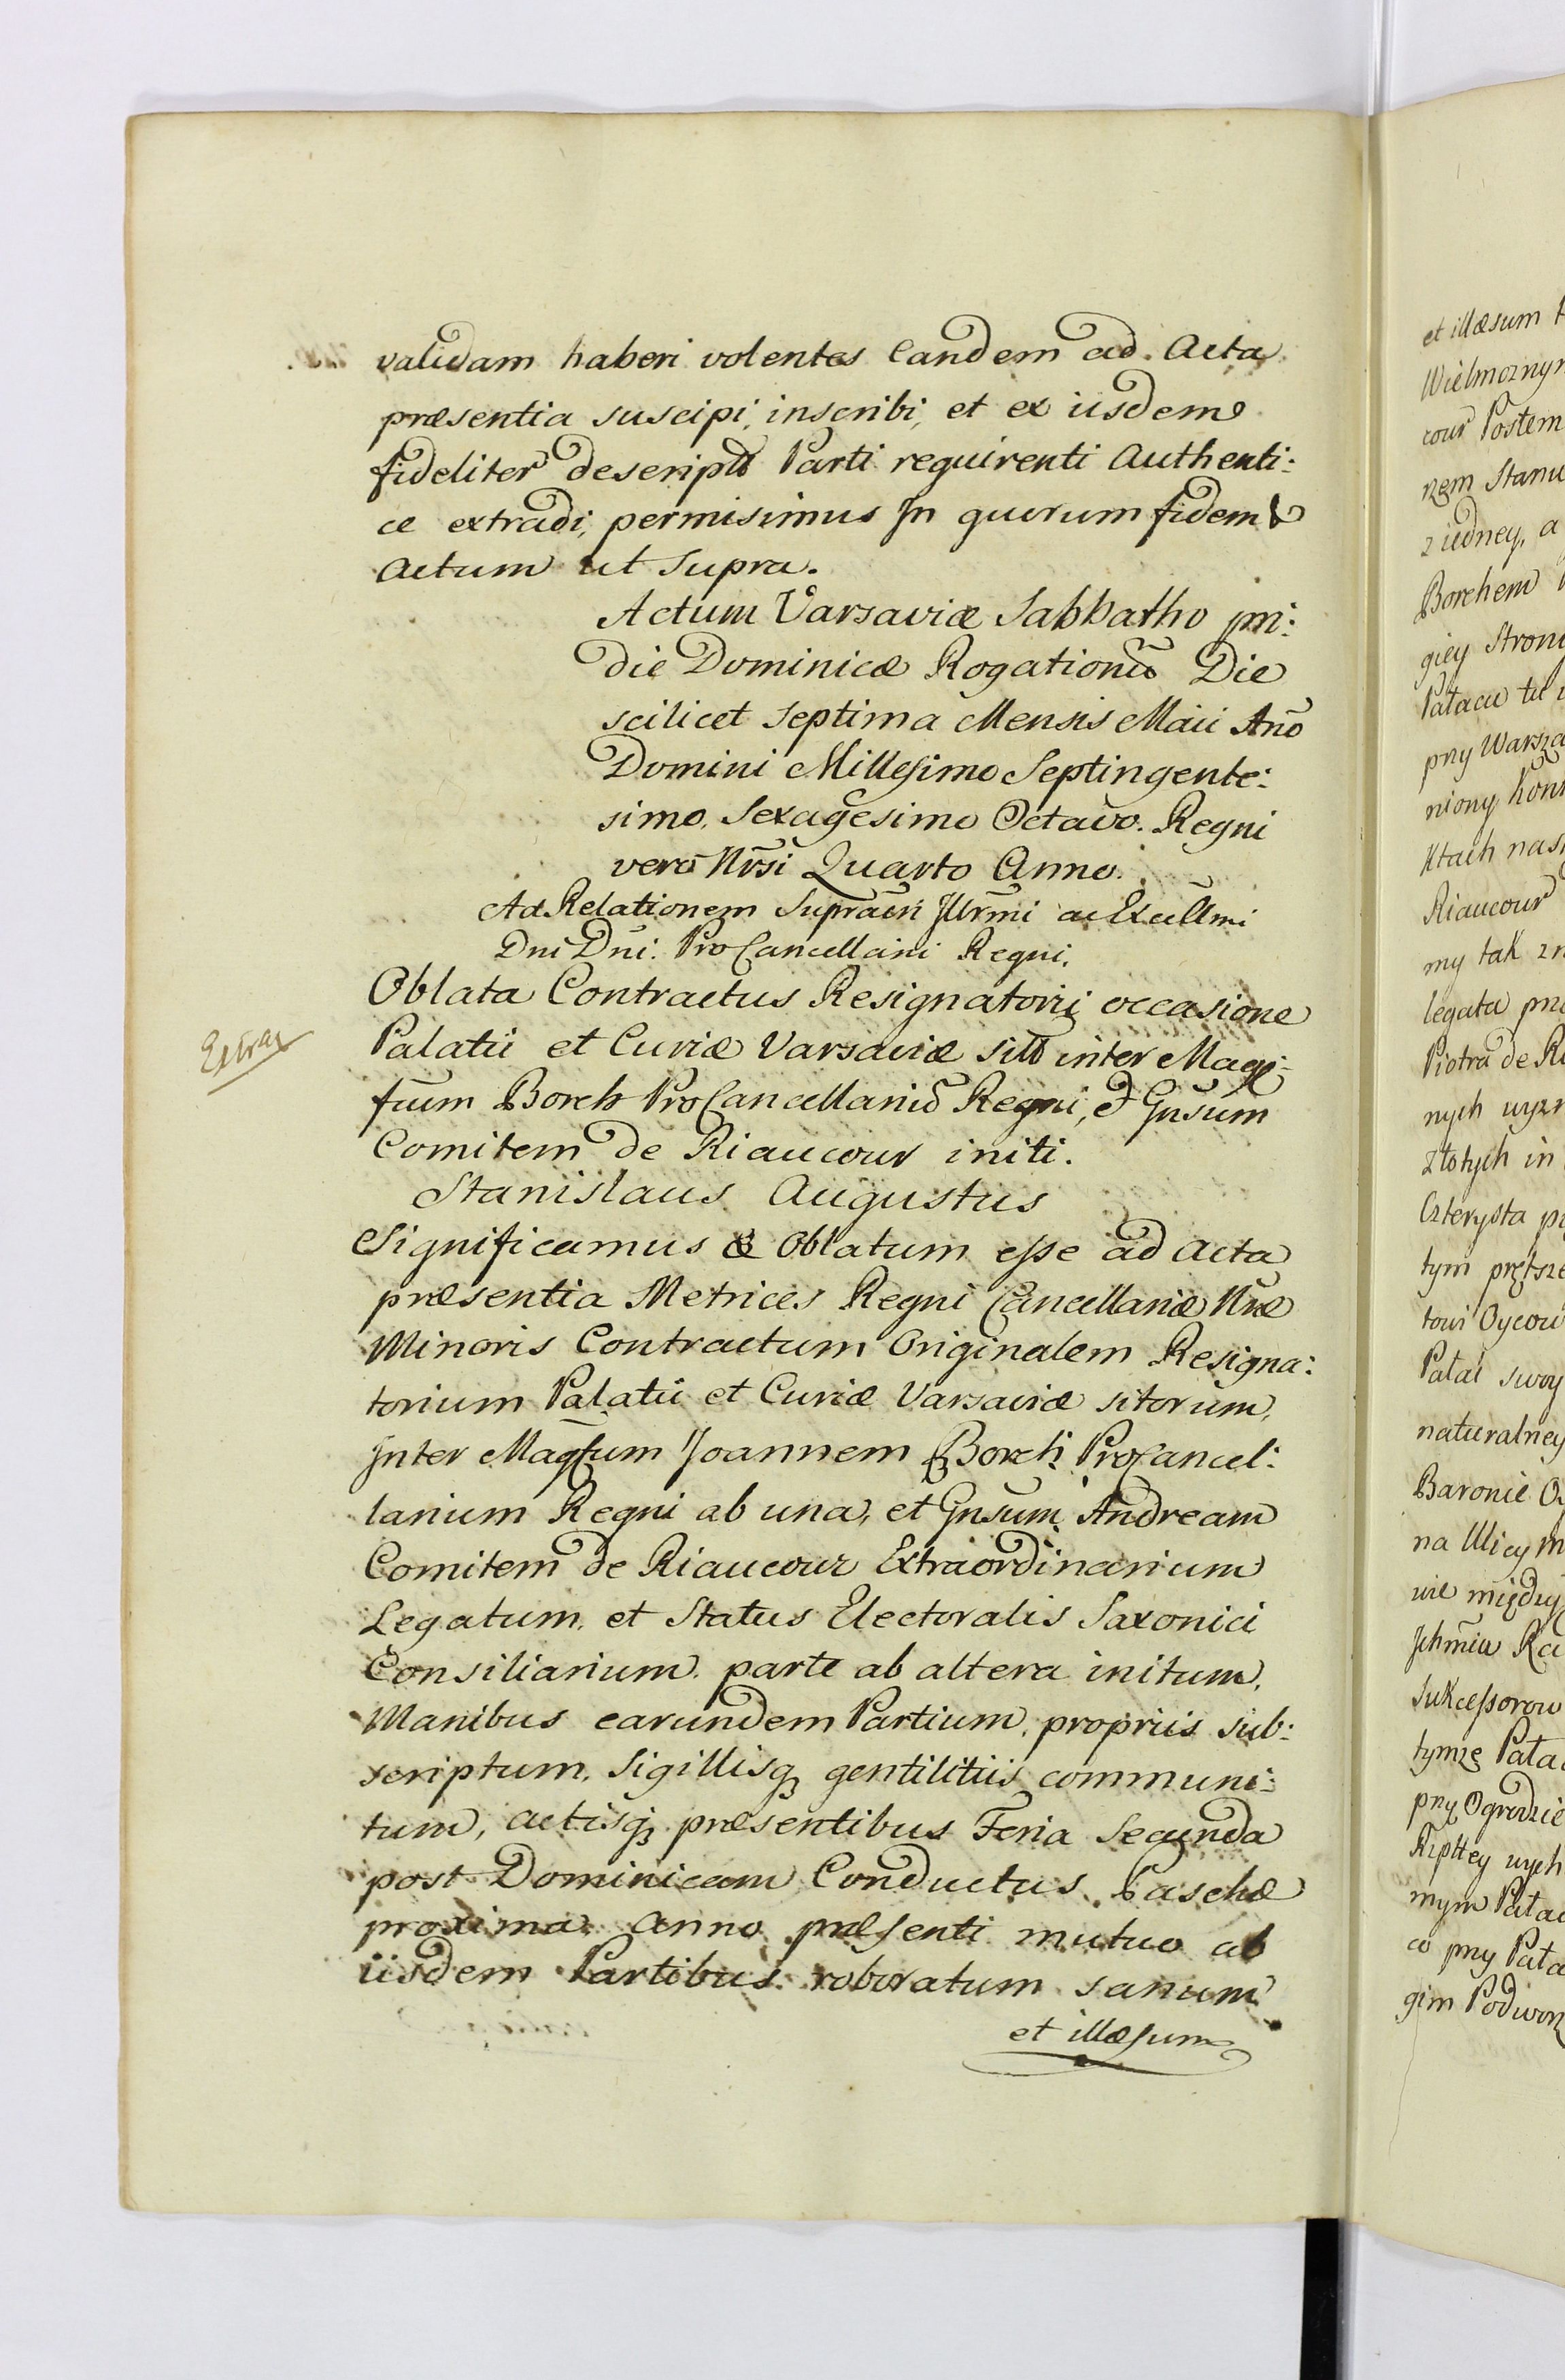 validam haberi volentes Eandem ad Acta
præsentia suscipi, inscribi, et ex iisdem
fideliter descriptā Parti requirenti Authenti:
ce extradi, permisimus In quorum fidem &
Actum ut Supra.
Actum Varsaviæ Sabbatho pri:
die Dominicæ Rogationū Die
scilicet Septima Mensis Maii Anō
Domini Millesimo Septingente:
simo, Sexagesimo Octavo. Regni
vero Nrsi Quarto Anno.
Ad Relationem Supracti Illrmi ac Excellmi
Dni Dni. ProCancellarii Regni.
Extrax
Oblata Contractus Resignatorii occasione
Palatii et Curiæ Varsaviæ sitt inter Mag:
fcum Borch ProCancellariū Regni, & Gnsum
Comitem de Riaucour initi.
Stanislaus Augustus
Significamus & Oblatum esse ad Acta
præsentia Metrices Regni Cancellariæ Nræ
Minoris Contractum Originalem Resigna:
torium Palatii et Curiæ Varsaviæ sitorum,
Inter Magfcum Joannem Borch ProCancel:
larium Regni ab una, et Gnsum Andream
Comitem de Riaucour Extraordinarium
Legatum, et Status Electoralis Saxonici
Consiliarium, parte ab altera initum,
Manibus earundem Partium, propriis sub:
scriptum, Sigillisq gentilitiis communi:
tum, Actisq præsentibus Feria Secunda
post Dominicam Conductus Paschæ
proxima Anno præsenti mutuo ab
iisdem Partibus roboratum sanum
et illæsum
et illæsum
Wielmożnym
cour Postem
Stanu
z iedney, a
Borchem
giey Stroni
Pałacu tu
przy Warsza
niony Kon
Ktach nas
Riaucour
my tak
legata
Piotra de
nych
złotych in
Czterysta
tym
towi Oycow
Pałac swoy
naturalney
Baronie
na Ulicy
wie między
Jchmiu
Sukcessorow
tymże
przy Ogrodzie
Rzpltey
mym
co przy
gim Podworz